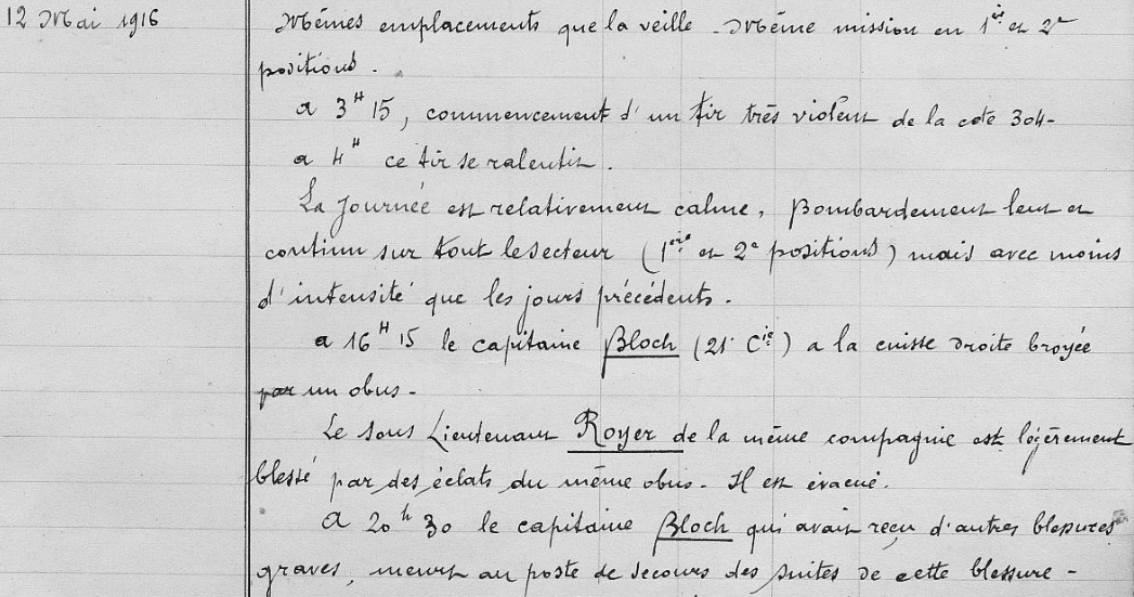 12 Mai 1916
Mêmes emplacements que la veille - Même mission en 1ère et 2e
positions.
a 3H 15, commencement d'un tir très violent de la cote 304-
a 4H ce tir se ralentit.
La journée est relativement calme, Bombardement lent et
continu sur tout le secteur (1ère et 2e positions) mais avec moins
d'intensité que les jours précédents.
a 16H 15 le capitaine Bloch (21e Cie) a la cuisse droite broyée
par un obus-
Le sous Lieutenant Royer de la même compagnie est légèrement
blessé par des éclats du même obus- Il est évacué.
A 20h 30 le capitaine Bloch qui avait reçu d'autres blessures
graves, meurt au poste de secours des suites de cette blessure-